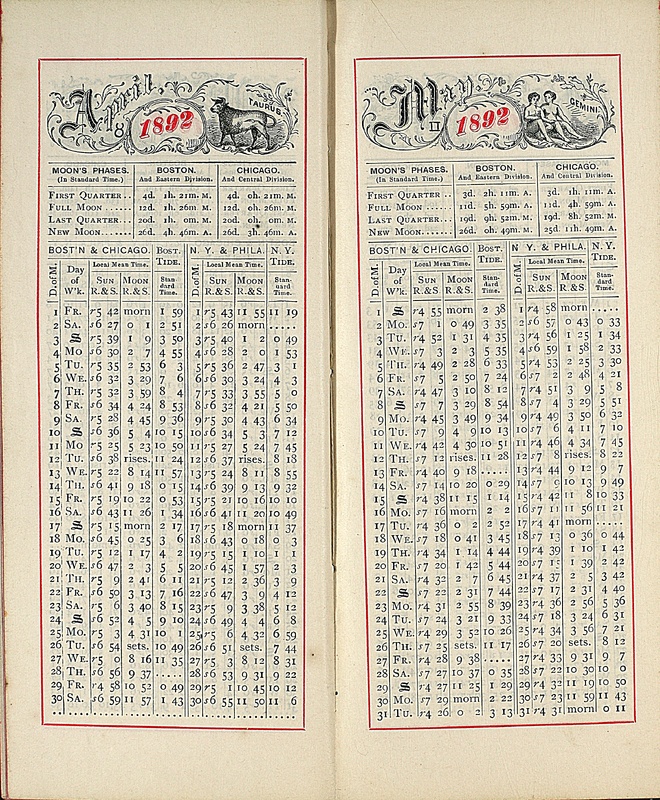 April.
1892
8
TAURUS.
MOON'S PHASES. BOSTON. CHICAGO.
(In Standard Time.) And Eastern Division. And Central Division.
FIRST QUARTER... 4d. 1h. 21m. M. 4d. 0h. 21m. M.
FULL MOON..... 12d. 1h. 26m. M. 12d. 0h. 26m. M.
LAST QUARTER... 20d. 1h. 0m. M. 20d. 0h. 0m. M.
NEW MOON....... 26d. 4h. 46m. A. 26d. 3h. 46m. A.
BOST'N & CHICAGO. BOST. TIDE. N. Y. & PHILA. N. Y. TIDE.
D. of M. Day of W'k. Local Mean Time. SUN R.&S. MOON R.&S. Standard Time. D. of M. Local Mean Time. SUN R.&S. MOON R.&S. Standard Time.
1 FR. r5 42 morn 1 59 1 r5 43 11 55 11 19
2 SA. s6 27 0 1 2 51 2 s6 26 morn .....
3 S r5 39 1 9 3 50 3 r5 40 1 2 0 49
4 MO s6 30 2 7 4 55 4 s6 28 2 0 1 53
5 TU. r5 35 2 53 6 3 5 r5 36 2 47 3 1
6 WE. s6 32 3 29 7 6 6 s6 30 3 24 4 3
7 TH. r5 32 3 59 8 4 7 r5 33 3 55 5 0
8 FR. s6 34 4 24 8 53 8 s6 32 4 21 5 50
9 SA. r5 28 4 45 9 36 9 r5 30 4 43 6 34
10 S s6 36 5 4 10 15 10 s6 34 5 3 7 12
11 MO r5 25 5 23 10 50 11 r5 27 5 24 7 45
12 TU. s6 38 rises. 11 24 12 s6 37 rises. 8 18
13 WE. r5 22 8 14 11 57 13 r5 24 8 11 8 55
14 TH. s6 41 9 18 0 15 14 s6 39 9 13 9 32
15 FR. r5 19 10 22 0 53 15 r5 21 10 16 10 10
16 SA. s6 43 11 26 1 34 16 s6 41 11 20 10 49
17 S r5 15 morn 2 17 17 r5 18 morn 11 37
18 MO. s6 45 0 25 3 6 18 s6 43 0 18 0 3
19 TU. r5 12 1 17 4 2 19 r5 15 1 10 1 1
20 WE. s6 47 2 3 5 5 20 s6 45 1 57 2 3
21 TH. r5 9 2 41 6 11 21 r5 12 2 36 3 9
22 FR. s6 50 3 13 7 16 22 s6 47 3 9 4 12
23 SA. r5 6 3 40 8 15 23 r5 9 3 38 5 12
24 S s6 52 4 5 9 10 24 s6 49 4 4 6 8
25 MO. r5 3 4 31 10 1 25 r5 6 4 32 6 59
26 TU. s6 54 sets. 10 49 26 s6 51 sets. 7 44
27 WE. r5 0 8 16 11 35 27 r5 3 8 12 8 31
28 TH. s6 56 9 37 ..... 28 s6 53 9 31 9 22
29 FR. r4 58 10 52 0 49 29 r5 1 10 45 10 12
30 SA. s6 59 11 57 1 43 30 s6 55 11 50 11 6
May.
1892
GEMINI.
MOON'S PHASES. BOSTON. CHICAGO.
(In Standard Time.) And Eastern Division. And Central Division.
FIRST QUARTER... 3d. 2h. 11m. A. 3d. 1h. 11m. A.
FULL MOON..... 11d. 5h. 59m. A. 11d. 4h. 59m. A.
LAST QUARTER... 19d. 9h. 52m. M. 19d. 8h. 52m. M.
NEW MOON....... 26d. 0h. 49m. M. 25d. 11h. 49m. A.
BOST'N & CHICAGO. BOST. TIDE. N. Y. & PHILA. N. Y. TIDE.
D. of M. Day of W'k. Local Mean Time. SUN R.&S. MOON R.&S. Standard Time. D. of M. Local Mean Time. SUN R.&S. MOON R.&S. Standard Time.
1 S r4 55 morn 2 38 1 r4 58 morn .....
2 MO. s7 1 0 49 3 35 2 s6 57 0 43 0 33
3 TU. r4 52 1 31 4 35 3 r4 56 1 25 1 34
4 WE. s7 3 2 3 5 35 4 s6 59 1 58 2 33
5 TH. r4 49 2 28 6 33 5 r4 53 2 25 3 30
6 FR. s7 5 2 50 7 24 6 s7 2 2 48 4 21
7 SA. r4 47 3 10 8 12 7 r4 51 3 9 5 8
8 S s7 7 3 29 8 54 8 s7 4 3 29 5 51
9 MO. r4 45 3 49 9 34 9 r4 49 3 50 6 32
10 TU. s7 9 4 9 10 13 10 s7 6 4 11 7 10
11 WE. r4 42 4 30 10 51 11 r4 46 4 34 7 45
12 TH. s7 12 rises. 11 28 12 s7 8 rises. 8 22
13 FR. r4 40 9 18 ..... 13 r4 44 9 12 9 7
14 SA. s7 14 10 20 0 29 14 s7 10 10 13 9 49
15 S r4 38 11 15 1 14 15 r4 42 11 8 10 33
16 MO. s7 16 morn 2 2 16 s7 11 11 56 11 21
17 TU. r4 36 0 2 2 52 17 r4 41 morn .....
18 WE. s7 18 0 41 3 45 18 s7 13 0 36 0 44
19 TH. r4 34 1 14 4 44 19 r4 39 1 10 1 42
20 FR. s7 20 1 42 5 44 20 s7 15 1 39 2 42
21 SA. r4 32 2 7 6 45 21 r4 37 2 5 3 42
22 S s7 22 2 31 7 44 22 s7 17 2 31 4 40
23 MO. r4 31 2 55 8 39 23 r4 36 2 56 5 36
24 TU. s7 24 3 21 9 33 24 s7 18 3 24 6 31
25 WE. r4 29 3 52 10 26 25 r4 34 3 56 7 21
26 TH. s7 25 sets. 11 17 26 s7 20 sets. 8 12
27 FR. r4 28 9 38 ..... 27 r4 33 9 31 9 7
28 SA. s7 27 10 37 0 35 28 s7 22 10 30 10 0
29 S r4 27 11 25 1 29 29 r4 32 11 19 10 50
30 MO. s7 29 morn 2 22 30 s7 23 11 59 11 43
31 TU. r4 26 0 2 3 13 31 r4 31 morn 0 11